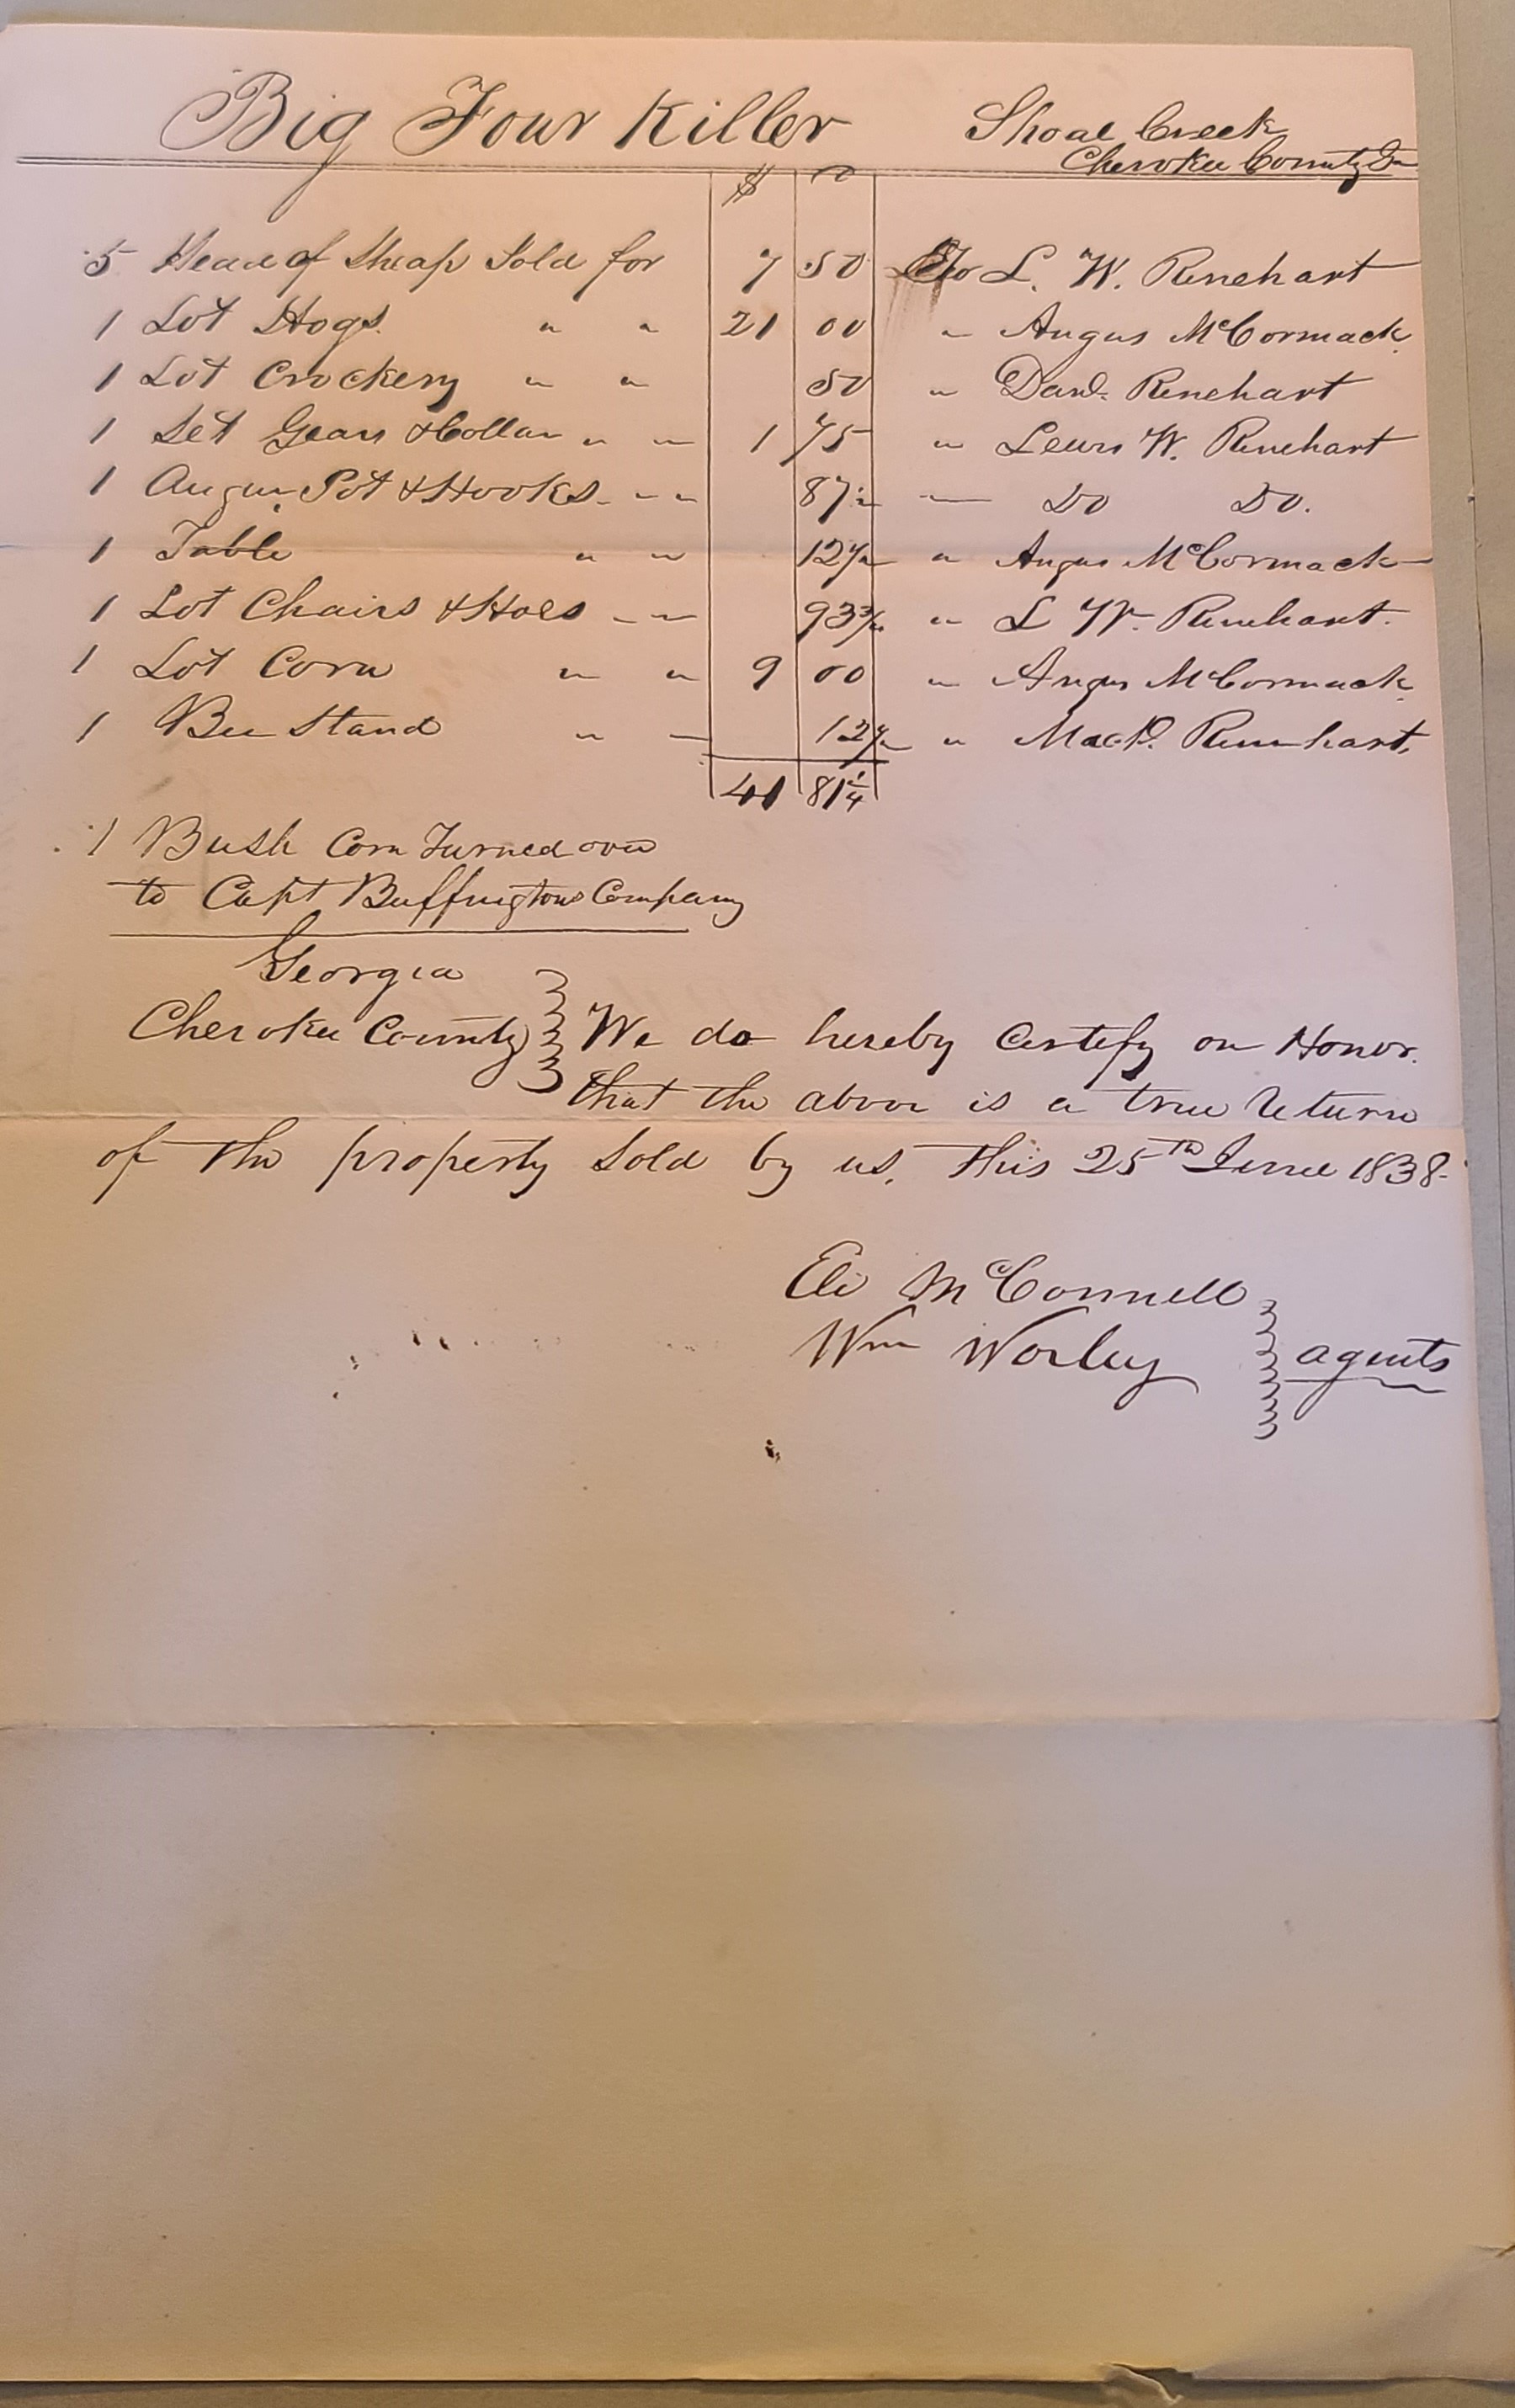 Big Four Killer Shoal Creek
Cherokee County Ga
$
5 Head of Sheap Sold for 7 50 To L. W. Rinehart
1 Lot Hogs " " 21 00 " Angus McCormack
1 Lot Crockery " " 50 " Danl. Rinehart
1 Set Gears & Collar " " 1 75 " Lewis W. Rinehart
1 Augur, Pot & Hooks " " 87 1/2 — Do Do.
1 Table " " 12 1/2 " Angus McCormack
1 Lot Chairs & Hoes " " 93 3/4 " L W. Rinehart.
1 Lot Corn " " 9 00 " Angus McCormack
1 Bee Stand " " 12 1/2 " Rinehart,
41 81 1/4
1 Bush Corn Turned over
to Capt Buffingtons Company
Georgia
Cherokee County } We do hereby Certify on Honor.
that the above is a true return
of the property Sold by us, this 25th June 1838.
Eli McConnell
Wm Worley } agents